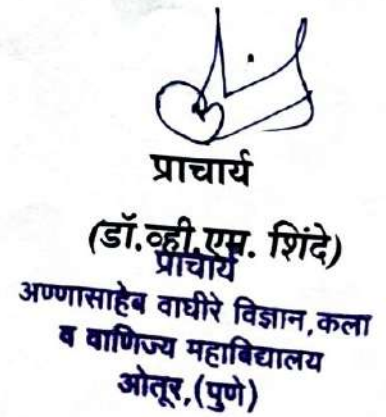 प्राचार्य
(डॉ.व्ही.एम. शिंदे)
प्राचार्य
अण्णासाहेब वाघीरे विज्ञान,कला
व वाणिज्य महाविद्यालय
ओतूर,(पुणे)